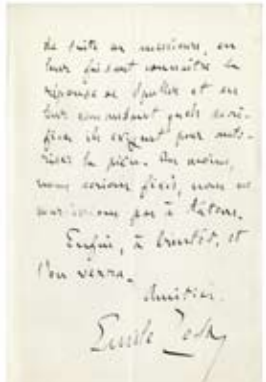 de suite ces messieurs, en
leur faisant connaître la
réponse de Spuller et en
leur demandant quels sacri-
fices ils exigent pour auto-
riser la pièce. Au moins,
nous serions fixés, nous ne
marcherions pas à tâtons.
Enfin, à bientôt, et
l'on verra.
Amitiés.
Emile Zola